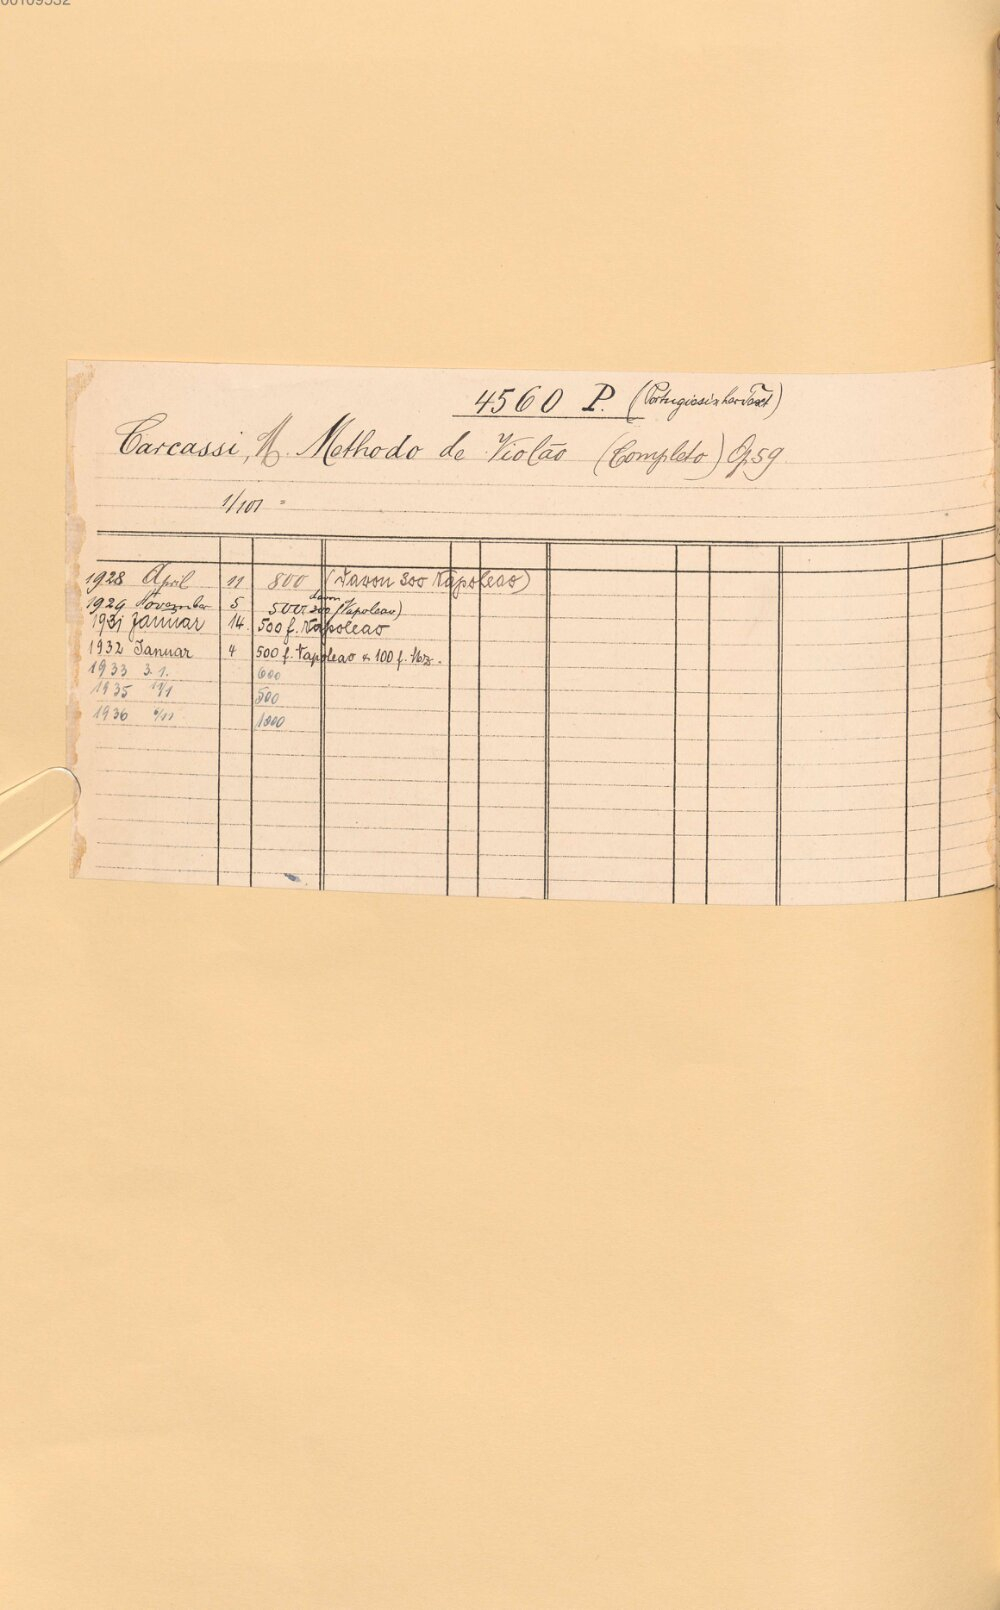 4560 P. (Portugiesischer Text)
Carcassi, M. Methodo de Violão (Completo) Op. 59
1/101 =
1928 April 11 800 (davon 300 Napoleao)
1929 November 5 500 davon 200 (Napoleao)
1931 Januar 14. 500 f. Napoleao
1932 Januar 4 500 f. Napoleao & 100 f.
1933 3.1. 600
1935 500
1936 1000